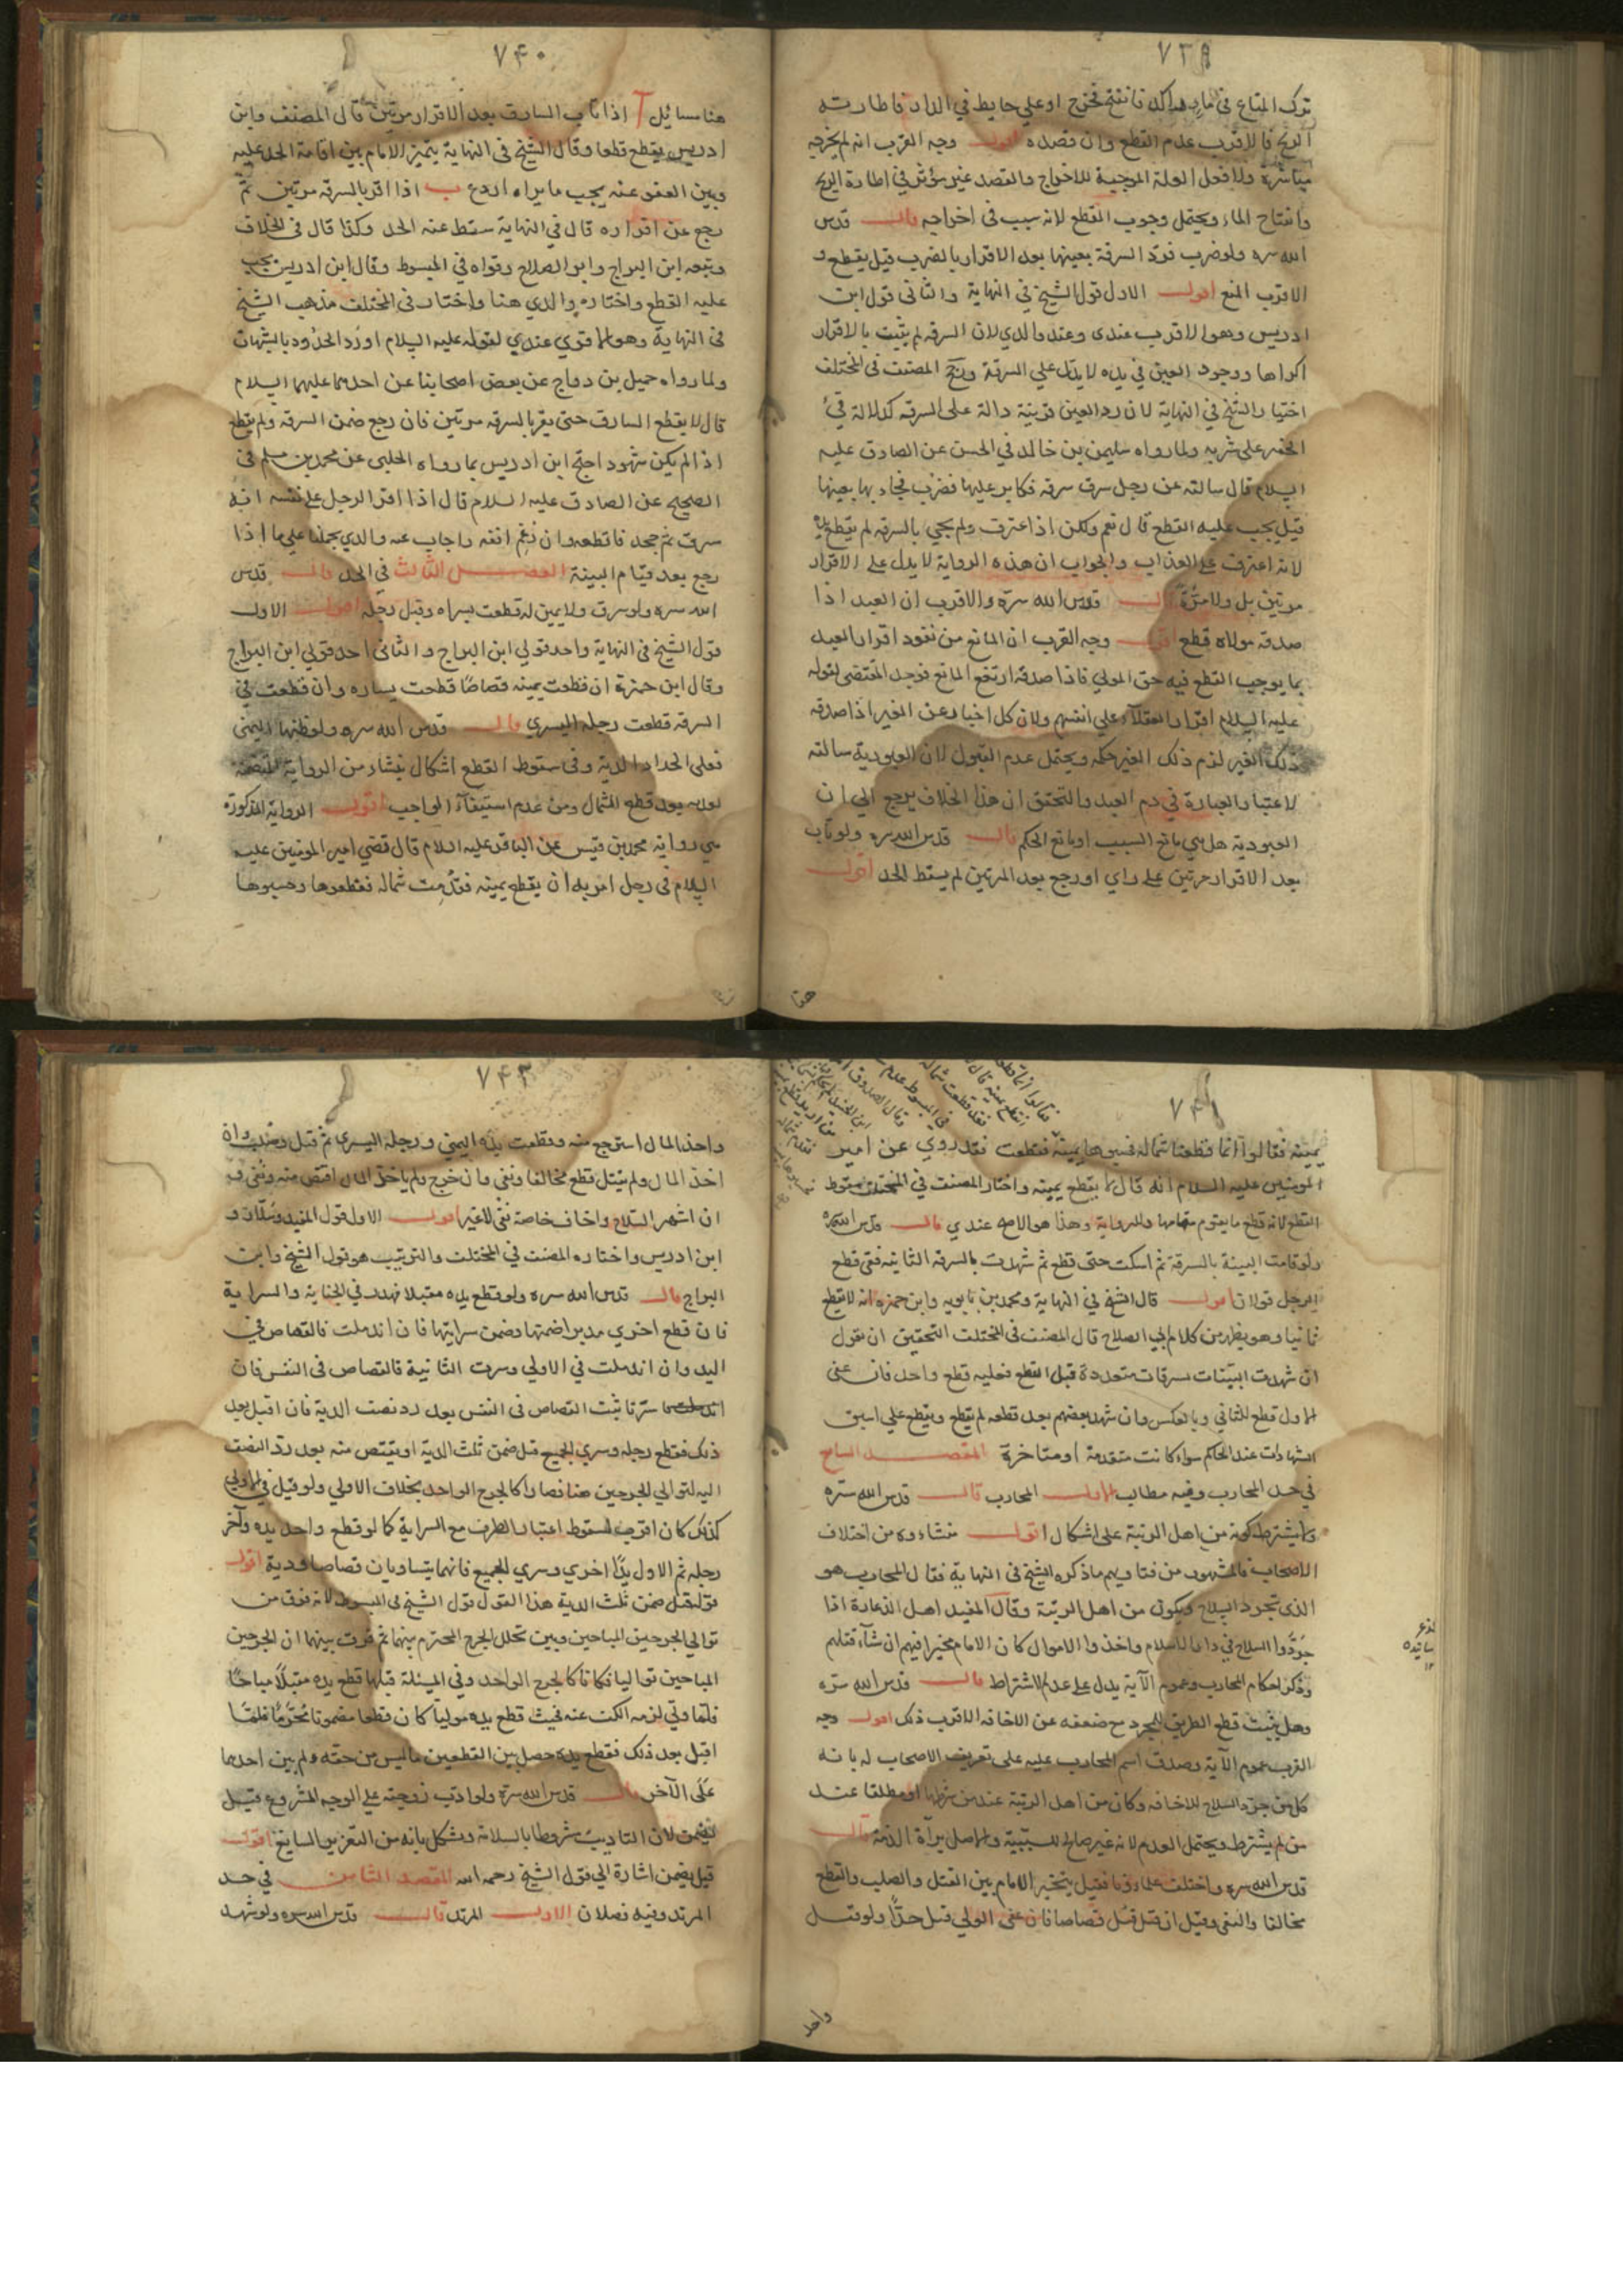 ٧٣٩
ترك المتاع في ماء راكد فانفتح فخرج او علي حايط في الدار فاطارته
الريح فالاقرب عدم القطع وان قصده اقول وجه القرب انه لم يخرجه
مباشرة ولا فعل العلة الموجبة للاخراج والقصد غير مؤثر في اطارة الريح
وانفتاح الماء ويحتمل وجوب القطع لانه سبب في اخراجه قال قدس
الله سره ولو ضرب فرد السرقة بعينها بعد الاقرار بالضرب قيل يقطع و
الاقرب المنع اقول الاول قول الشيخ في النهاية والثاني قول ابن
ادريس وهو الاقرب عندي وعند والدي لان السرقه لم يثبت بالاقرار
اكراها ووجود العين في يده لا يدل علي السرقة ورجح المصنف في المختلف
اختيار الشيخ في النهاية لان رد العين قرينة دالة على السرقه كدلالة قيء
الخمر على شربه ولما رواه سليمن بن خالد في الحسن عن الصادق عليه
السلام قال سالته عن رجل سرق سرقه فكابر عليها فضرب فجاء بها بعينها
قيل يجب عليه القطع قال نعم ولكن اذا اعترف ولم يجئ بالسرقه لم يقطع يده
لانه اعترف على العذاب والجواب ان هذه الرواية لا يدل على الاقرار
مرتين بل ولا مرة قال قدس الله سره والاقرب ان العبد اذا
صدقه مولاه قطع اقول وجه القرب ان المانع من نفوذ اقرار العبد
بما يوجب القطع فيه حق المولي فاذا صدقه ارتفع المانع فوجد المقتضى لقوله
عليه السلام اقرار العقلاء علي انفسهم ولان كل اخبار عن الغير اذا صدقه
ذلك الغير لزم ذلك الغير حكمه ويحتمل عدم القبول لان العبودية سالته
لاعتبار العبارة في دم العبد والتحقيق ان هذا الخلاف يرجع الي ان
العبودية هل هي مانع السبب او مانع الحكم قال قدس الله سره ولو تاب
بعد الاقرار مرتين على راي او رجع بعد المرتين لم يسقط الحد اقول
هنا
٧۴٠
هنا مسائل آ اذا تاب السارق بعد الاقرار مرتين قال المصنف وابن
ادريس يقطع قطعا وقال الشيخ في النهاية يتميز الامام بين اقامة الحد عليه
وبين العفو عنه يجب ما يراه اردع ب اذا اقر بالسرقه مرتين ثم
رجع عن اقراره قال في النهاية سقط عنه الحد وكذا قال في الخلاف
وتبعه ابن البراج وابو الصلاح وقواه في المبسوط وقال ابن ادريس يجب
عليه القطع واختاره والدي هنا واختار في المختلف مذهب الشيخ
في النهاية وهو الاقوي عندي لقوله عليه السلام ادرؤا الحدود بالشبهات
ولما رواه جميل بن دراج عن بعض اصحابنا عن احدهما عليهما السلام
قال لا يقطع السارق حتى يقر بالسرقه مرتين فان رجع ضمن السرقه ولم يقطع
اذا لم يكن شهود احتج ابن ادريس بما رواه الحلبي عن محمد بن مسلم في
الصحيح عن الصادق عليه السلام قال اذا اقر الرجل على نفسه انه
سرق ثم جحد فاقطعه وان رغم انفه واجاب عنه والدي بحملها على ما اذا
رجع بعد قيام البينة الفصل الثالث في الحد قال قدس
الله سره ولو سرق ولا يمين له قطعت يسراه وقيل رجله اقول الاول
قول الشيخ في النهاية واحد قولي ابن البراج والثاني احد قولي ابن البراج
وقال ابن حمزة ان قطعت يمينه قصاصا قطعت يساره وان قطعت في
السرقه قطعت رجله اليسري قال قدس الله سره ولو ظنها اليمنى
فعلى الحداد الدية وفي سقوط القطع اشكال ينشاء من الرواية المتضمنة
لعدمه بعد قطع الشمال ومن عدم استيفاء الواجب اقول الرواية المذكورة
هي رواية محمد بن قيس عن الباقر عليه السلام قال قضي امير المومنين عليه
السلام في رجل امر به ان يقطع يمينه فقدمت شماله فقطعوها وحسبوها
٧۴١
يمينه فقالوا انما قطعنا شماله فحسبوها يمينه فقطعت فقد روي عن امير
المومنين عليه السلام انه قال لا يقطع يمينه واختار المصنف في المختلف سقوط
القطع لانه قطع ما يقوم مقامها والرواية وهذا هو الاصح عندي قال قدس الله سره
ولو قامت البينة بالسرقة ثم امسكت حتى قطع ثم شهدت بالسرقه الثانيه ففي قطع
الرجل قولان اقول قال الشيخ في النهاية ومحمد بن بابويه وابن حمزه انه لا يقطع
ثانيا وهو يظهر من كلام ابي الصلاح قال المصنف في المختلف التحقيق ان نقول
ان شهدت البينات بسرقات متعددة قبل القطع فعليه قطع واحد فان عفى
الاول قطع للثاني وبالعكس وان شهد بعضهم بعد قطعه لم يقطع ويقطع علي اسبق
الشهادات عند الحاكم سواء كانت متقدمة او متاخرة المقصد السابع
في حد المحارب وفيه مطالب الاول المحارب قال قدس الله سره
ولا يشترط كونه من اهل الريبة على اشكال اقول منشاءه من اختلاف
الاصحاب فالمشهور من فتاويهم ما ذكره الشيخ في النهاية فقال المحارب هو
الذي يجرد السلاح ويكون من اهل الريبة وقال المفيد اهل الذعارة اذا
جردوا السلاح في دار الاسلام واخذوا الاموال كان الامام مخيرا فيهم ان شاء قتلهم
وذكر احكام المحارب وعموم الآية يدل على عدم الاشتراط قال قدس الله سره
وهل يثبت قطع الطريق للمجرد مع ضعفه عن الاخافه الاقرب ذلك اقول وجه
القرب عموم الآية وصدق اسم المحارب عليه على تعريف الاصحاب له بانه
كل من جرد السلاح للاخافه وكان من اهل الريبة عند من شرطها او مطلقا عند
من لم يشترط ويحتمل العدم لانه غير صالح للسببية والاصل براءة الذمة قال
قدس الله سره واختلف علماؤنا فقيل يتخير الامام بين القتل والصلب والقطع
مخالفا والنفي وقيل ان قتل قتل قصاصا فان عفى الولي قتل حدا ولو قتل
واخذ
٧۴٢
واخذ المال استرجع منه وقطعت يده اليمني ورجله اليسرى ثم قتل وصلب وان
اخذ المال ولم يقتل قطع مخالفا ونفي وان جرح ولم ياخذ المال اقتص منه ونفي و
ان اشهر السلاح واخاف خاصة نفي لا غير اقول الاول قول المفيد وسلار و
ابن ادريس واختاره المصنف في المختلف والترتيب هو قول الشيخ وابن
البراج قال قدس الله سره ولو قطع يده مقبلا فهدر في الجناية والسراية
فان قطع اخري مدبرا ضمنها وضمن سرايتها فان اندملت فالقصاص في
اليد وان اندملت في الاولي وسرت الثانية فالقصاص في النفس فان
سرتا ثبت القصاص في النفس بعد رد نصف الدية فان اقبل بعد
ذلك فقطع رجله وسري الجميع قيل ضمن ثلث الدية او يقتص منه بعد رد النصف
اليه لتوالي الجرحين هنا فصارا كالجرح الواحد بخلاف الاولي ولو قيل في الاولي
كذلك كان اقرب لسقوط اعتبار الطرف مع السراية كما لو قطع واحد يده وآخر
رجله ثم الاول يدا اخري وسري الجميع فانهما يتساويان قصاصا ودية اقول
قوله قيل ضمن ثلث الدية هذا القول قول الشيخ في المبسوط لانه فرق من
توالي الجرحين المباحين وبين تخلل الجرح المحترم بينهما ثم فرقت بينهما ان الجرحين
المباحين تواليا فكانا كالجرح الواحد وفي المسئلة قبلها قطع يده مقبلا مباحا
فلما ولي لزمه الكف عنه فحيث قطع يده موليا كان قطعا مضمونا محرما فلما
اقبل بعد ذلك فقطع يده حصل بين القطعين ما ليس من حقه ولم يبن احدهما
على الآخر قال قدس الله سره ولو ادب زوجته علي الوجه المشروع قيل
يضمن لان التاديب مشروط بالسلامة ويشكل بانه من التعزير السايغ اقول
قيل يضمن اشارة الي قول الشيخ رحمه الله المقصد الثامن في حد
المرتد وفيه فصلان الاول المرتد قال قدس الله سره ولو شهد